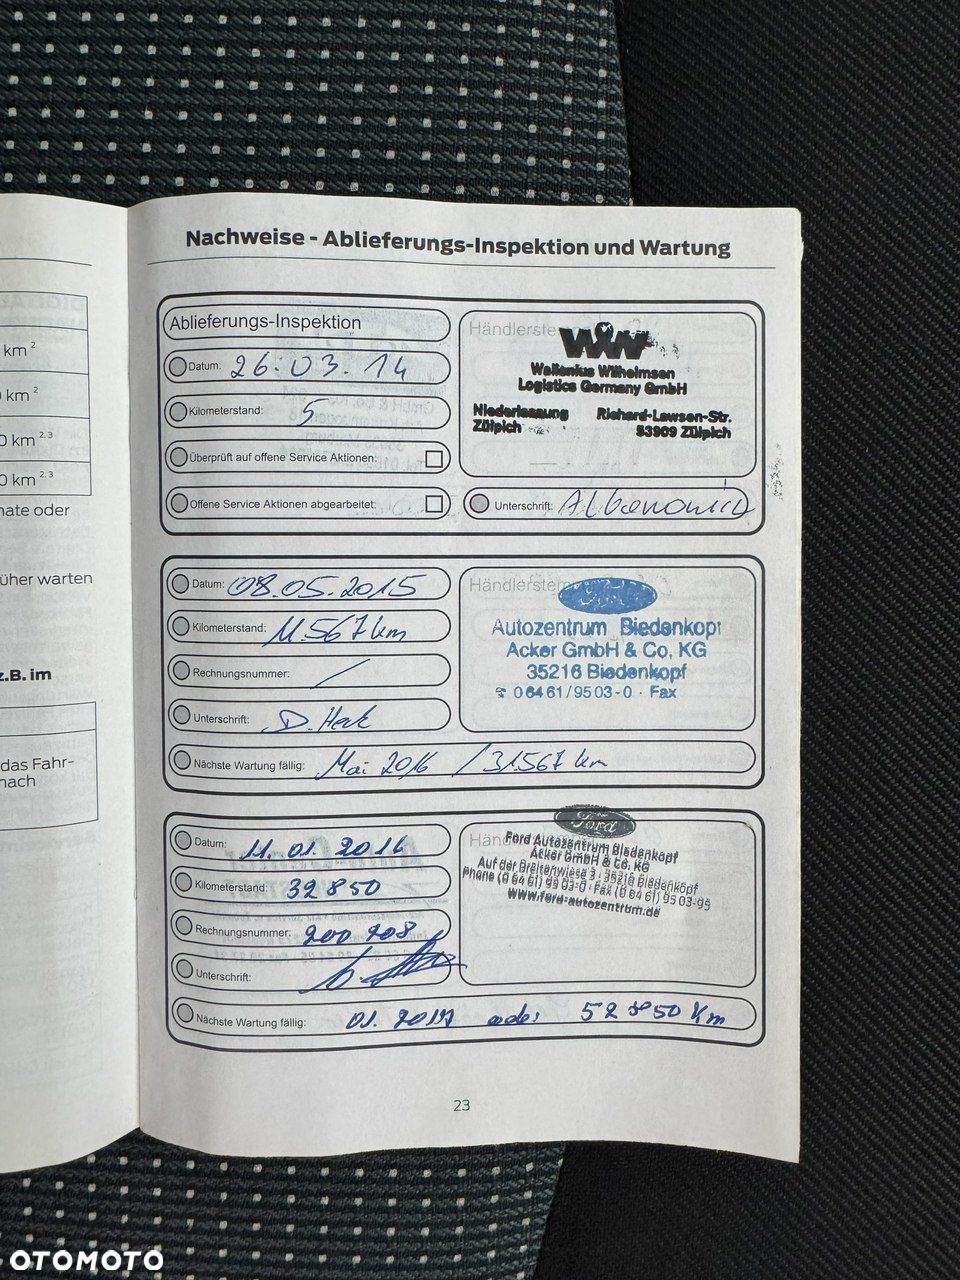 km ²
0 km ²
0 km ²·³
0 km ²·³
nate oder
üher warten
z.B. im
das Fahr-
nach
Nachweise - Ablieferungs-Inspektion und Wartung
Ablieferungs-Inspektion
Datum: 26.03.14
Kilometerstand: 5
Überprüft auf offene Service Aktionen:
Offene Service Aktionen abgearbeitet:
WWL
Wallenius Wilhelmsen
Logistics Germany GmbH
Niederlassung Richard-Lawson-Str.
Zülpich 53909 Zülpich
Unterschrift:
Datum: 08.05.2015
Kilometerstand: 11.567 km
Rechnungsnummer: /
Unterschrift: D. Heck
Nächste Wartung fällig: Mai 2016 / 31.567 km
Händlerstem
Ford
Autozentrum Biedenkopf
Acker GmbH & Co. KG
35216 Biedenkopf
☎ 0 64 61 / 95 03 - 0 · Fax
Datum: 11.01.2016
Kilometerstand: 32850
Rechnungsnummer: 200208
Unterschrift:
Nächste Wartung fällig: 01.2017 oder 52850 Km
Ford
Ford Autozentrum Biedenkopf
Acker GmbH & Co. KG
Auf der Breitenwiese 3 · 35216 Biedenkopf
Phone (0 64 61) 95 03-0 · Fax (0 64 61) 95 03-95
www.ford-autozentrum.de
23
OTOMOTO